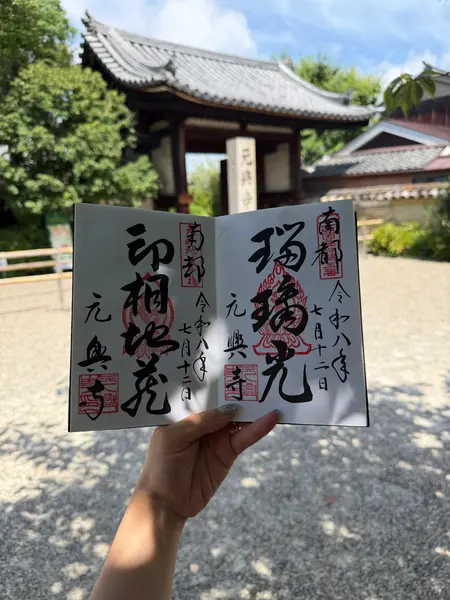 元興寺
南都
令和八年
七月十二日
瑠璃光
元興寺
南都
令和八年
七月十二日
印相地蔵
元興寺